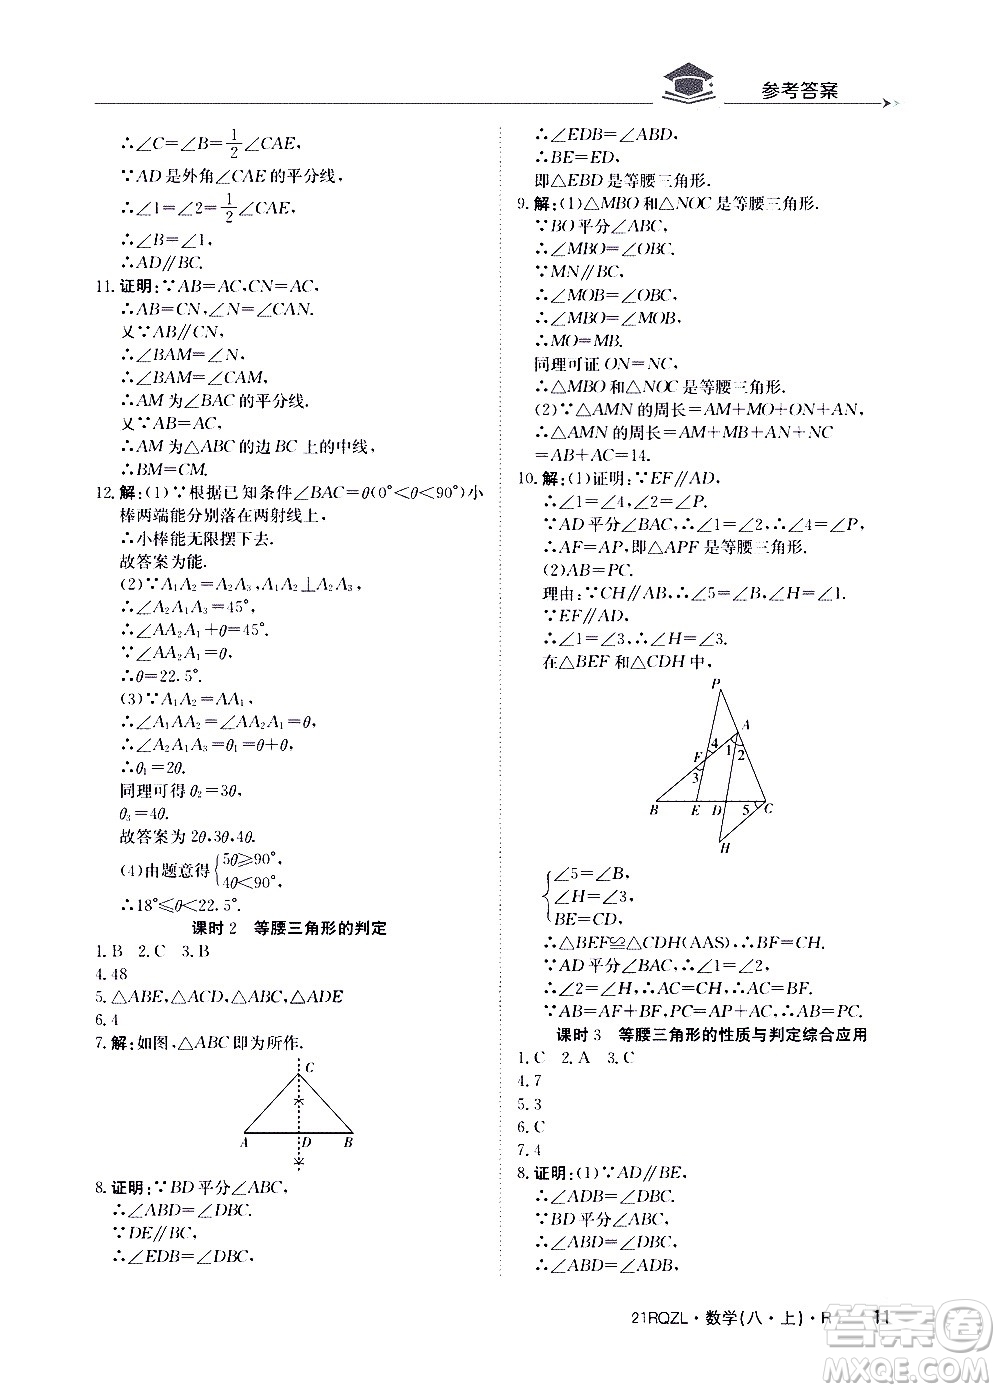 参考答案
∴∠C=∠B=1/2∠CAE.
∵AD是外角∠CAE的平分线,
∴∠1=∠2=1/2∠CAE,
∴∠B=∠1,
∴AD∥BC.
11. 证明:∵AB=AC,CN=AC,
∴AB=CN,∠N=∠CAN.
又∵AB∥CN,
∴∠BAM=∠N,
∴∠BAM=∠CAM,
∴AM为∠BAC的平分线.
又∵AB=AC,
∴AM为△ABC的边BC上的中线,
∴BM=CM.
12. 解:(1)∵根据已知条件∠BAC=θ(0°<θ<90°)小
棒两端能分别落在两射线上,
∴小棒能无限摆下去.
故答案为能.
(2)∵A₁A₂=A₂A₃,A₁A₂⊥A₂A₃,
∴∠A₂A₁A₃=45°,
∴∠AA₂A₁+θ=45°.
∵∠AA₂A₁=θ,
∴θ=22.5°.
(3)∵A₁A₂=AA₁,
∴∠A₁AA₂=∠AA₂A₁=θ,
∴∠A₂A₁A₃=θ₁=θ+θ,
∴θ₁=2θ.
同理可得θ₂=3θ,
θ₃=4θ.
故答案为2θ,3θ,4θ.
(4)由题意得{5θ≥90°,
4θ<90°,
∴18°≤θ<22.5°.
课时2 等腰三角形的判定
1. B 2. C 3. B
4. 48
5. △ABE,△ACD,△ABC,△ADE
6. 4
7. 解:如图,△ABC即为所作.
C
A D B
8. 证明:∵BD平分∠ABC,
∴∠ABD=∠DBC.
∵DE∥BC,
∴∠EDB=∠DBC,
∴∠EDB=∠ABD,
∴BE=ED,
即△EBD是等腰三角形.
9. 解:(1)△MBO和△NOC是等腰三角形.
∵BO平分∠ABC,
∴∠MBO=∠OBC.
∵MN∥BC,
∴∠MOB=∠OBC,
∴∠MBO=∠MOB,
∴MO=MB.
同理可证ON=NC,
∴△MBO和△NOC是等腰三角形.
(2)∵△AMN的周长=AM+MO+ON+AN,
∴△AMN的周长=AM+MB+AN+NC=
AB+AC=14.
10. 解:(1)证明:∵EF∥AD,
∴∠1=∠4,∠2=∠P.
∵AD平分∠BAC,∴∠1=∠2,∴∠4=∠P,
∴AF=AP,即△APF是等腰三角形.
(2)AB=PC.
理由:∵CH∥AB,∴∠5=∠B,∠H=∠1.
∵EF∥AD,
∴∠1=∠3,∴∠H=∠3.
在△BEF和△CDH中,
P
A
F 4 1 2
3
B E D 5 C
H
{∠5=∠B,
∠H=∠3,
BE=CD,
∴△BEF≌△CDH(AAS),∴BF=CH.
∵AD平分∠BAC,∴∠1=∠2,
∴∠2=∠H,∴AC=CH,∴AC=BF.
∵AB=AF+BF,PC=AP+AC,∴AB=PC.
课时3 等腰三角形的性质与判定综合应用
1. C 2. A 3. C
4. 7
5. 3
6. C
7. 4
8. 证明:(1)∵AD∥BE,
∴∠ADB=∠DBC.
∵BD平分∠ABC,
∴∠ABD=∠DBC,
∴∠ABD=∠ADB,
21RQZL·数学(八·上)·R 11
答案圈
MXQE.COM